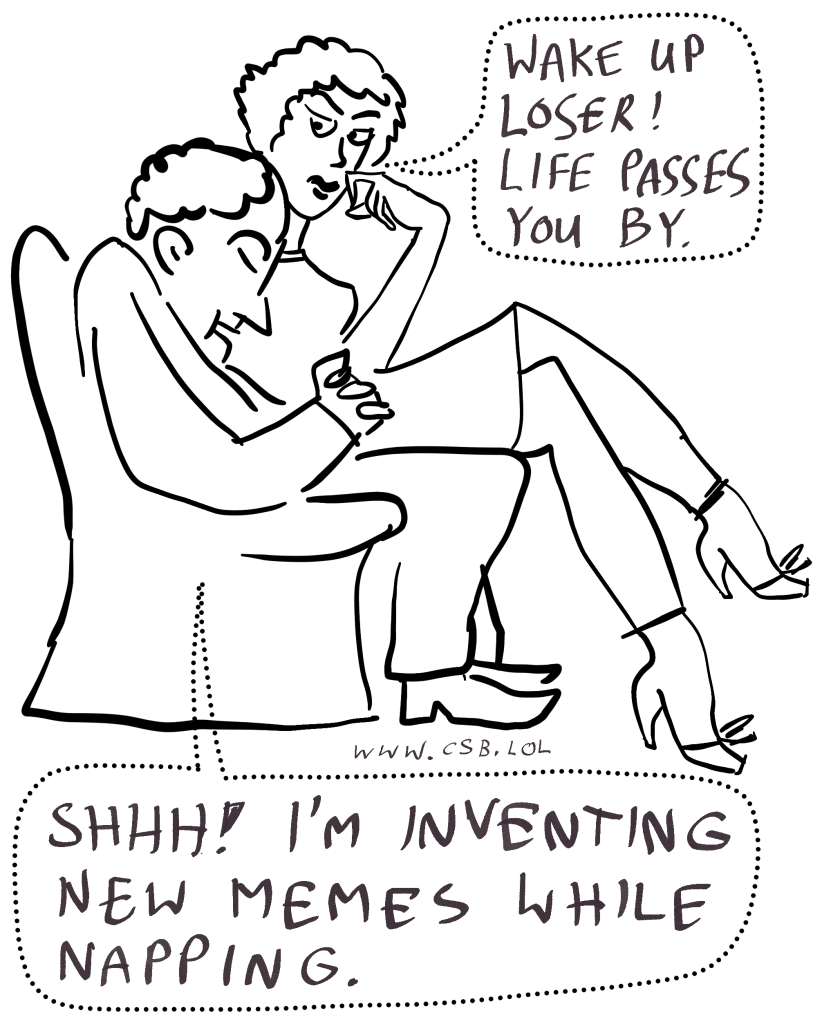 WAKE UP
LOSER!
LIFE PASSES
YOU BY.
WWW.CSB.LOL
SHHH! I'M INVENTING
NEW MEMES WHILE
NAPPING.